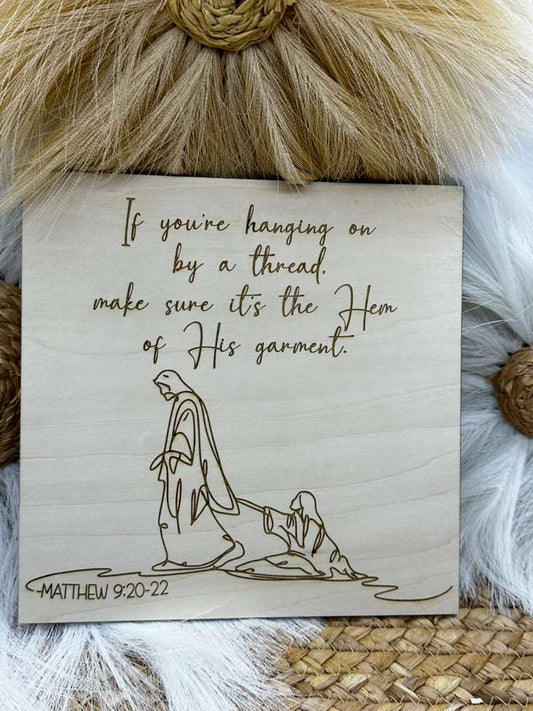 If you're hanging on
by a thread,
make sure it's the Hem
of His garment.
-MATTHEW 9:20-22